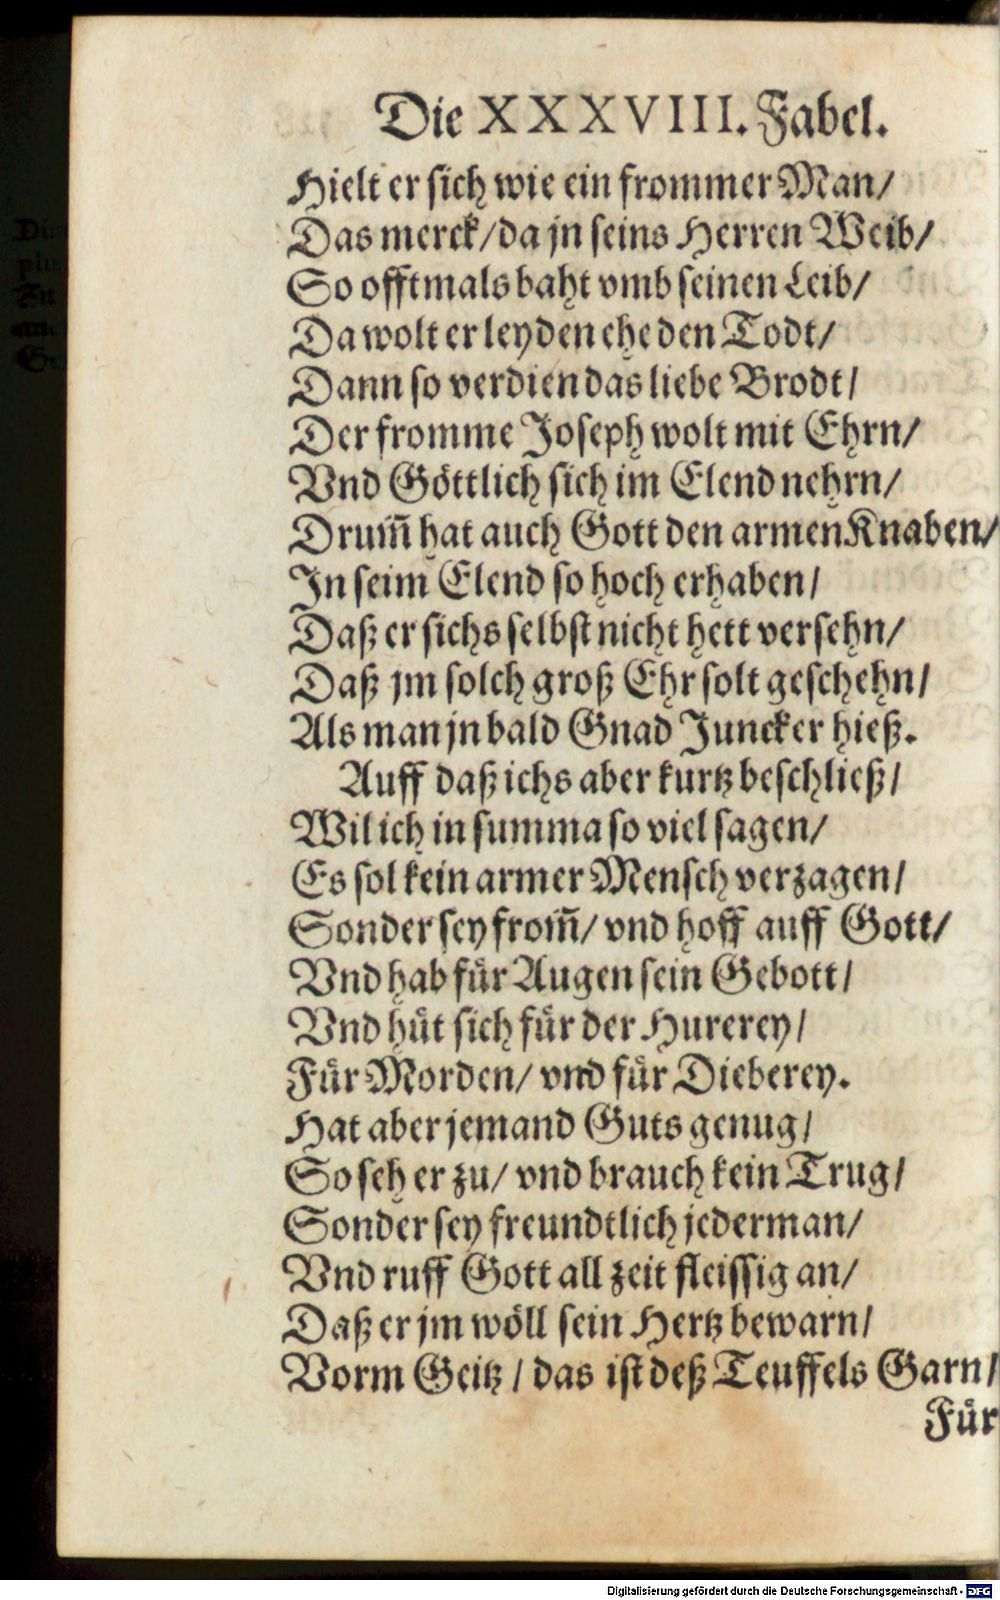 Die XXXVIII. Fabel.
Hielt er sich wie ein frommer Man/
Das merck/ da jn seins Herren Weib/
So offtmals baht vmb seinen Leib/
Da wolt er leyden ehe den Todt/
Dann so verdien das liebe Brodt/
Der fromme Joseph wolt mit Ehrn/
Vnd Göttlich sich im Elend nehrn/
Drum̃ hat auch Gott den armen Knaben/
In seim Elend so hoch erhaben/
Daß er sichs selbst nicht hett versehn/
Daß jm solch groß Ehr solt geschehn/
Als man jn bald Gnad Juncker hieß.
Auff daß ichs aber kurtz beschließ/
Wil ich in summa so viel sagen/
Es sol kein armer Mensch verzagen/
Sonder sey from̃/ vnd hoff auff Gott/
Vnd hab für Augen sein Gebott/
Vnd hüt sich für der Hurerey/
Für Morden/ vnd für Dieberey.
Hat aber jemand Guts genug/
So seh er zu/ vnd brauch kein Trug/
Sonder sey freundtlich jederman/
Vnd ruff Gott all zeit fleissig an/
Daß er jm wöll sein Hertz bewarn/
Vorm Geitz / das ist deß Teuffels Garn/
Für
Digitalisierung gefördert durch die Deutsche Forschungsgemeinschaft - DFG